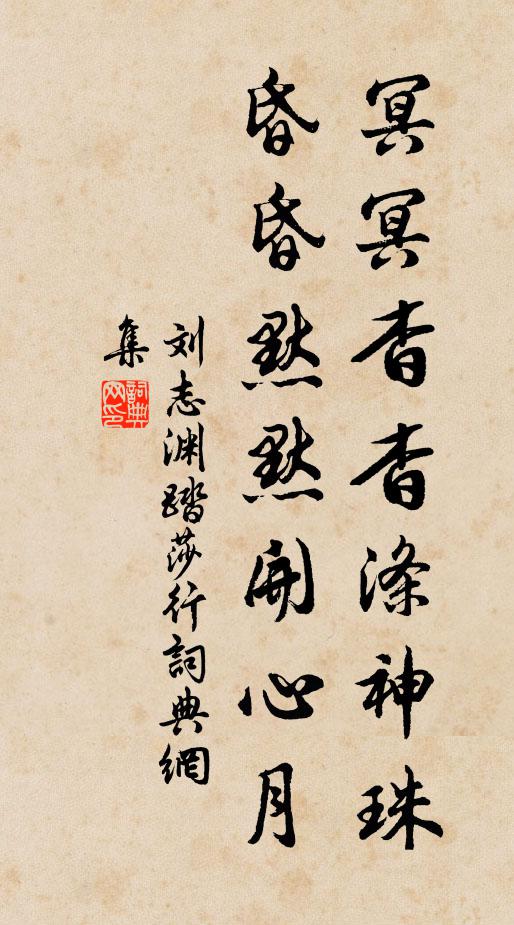 冥冥杳杳涤神珠
昏昏默默開心月
刘志渊踏莎行詞典網
集
詞典网印